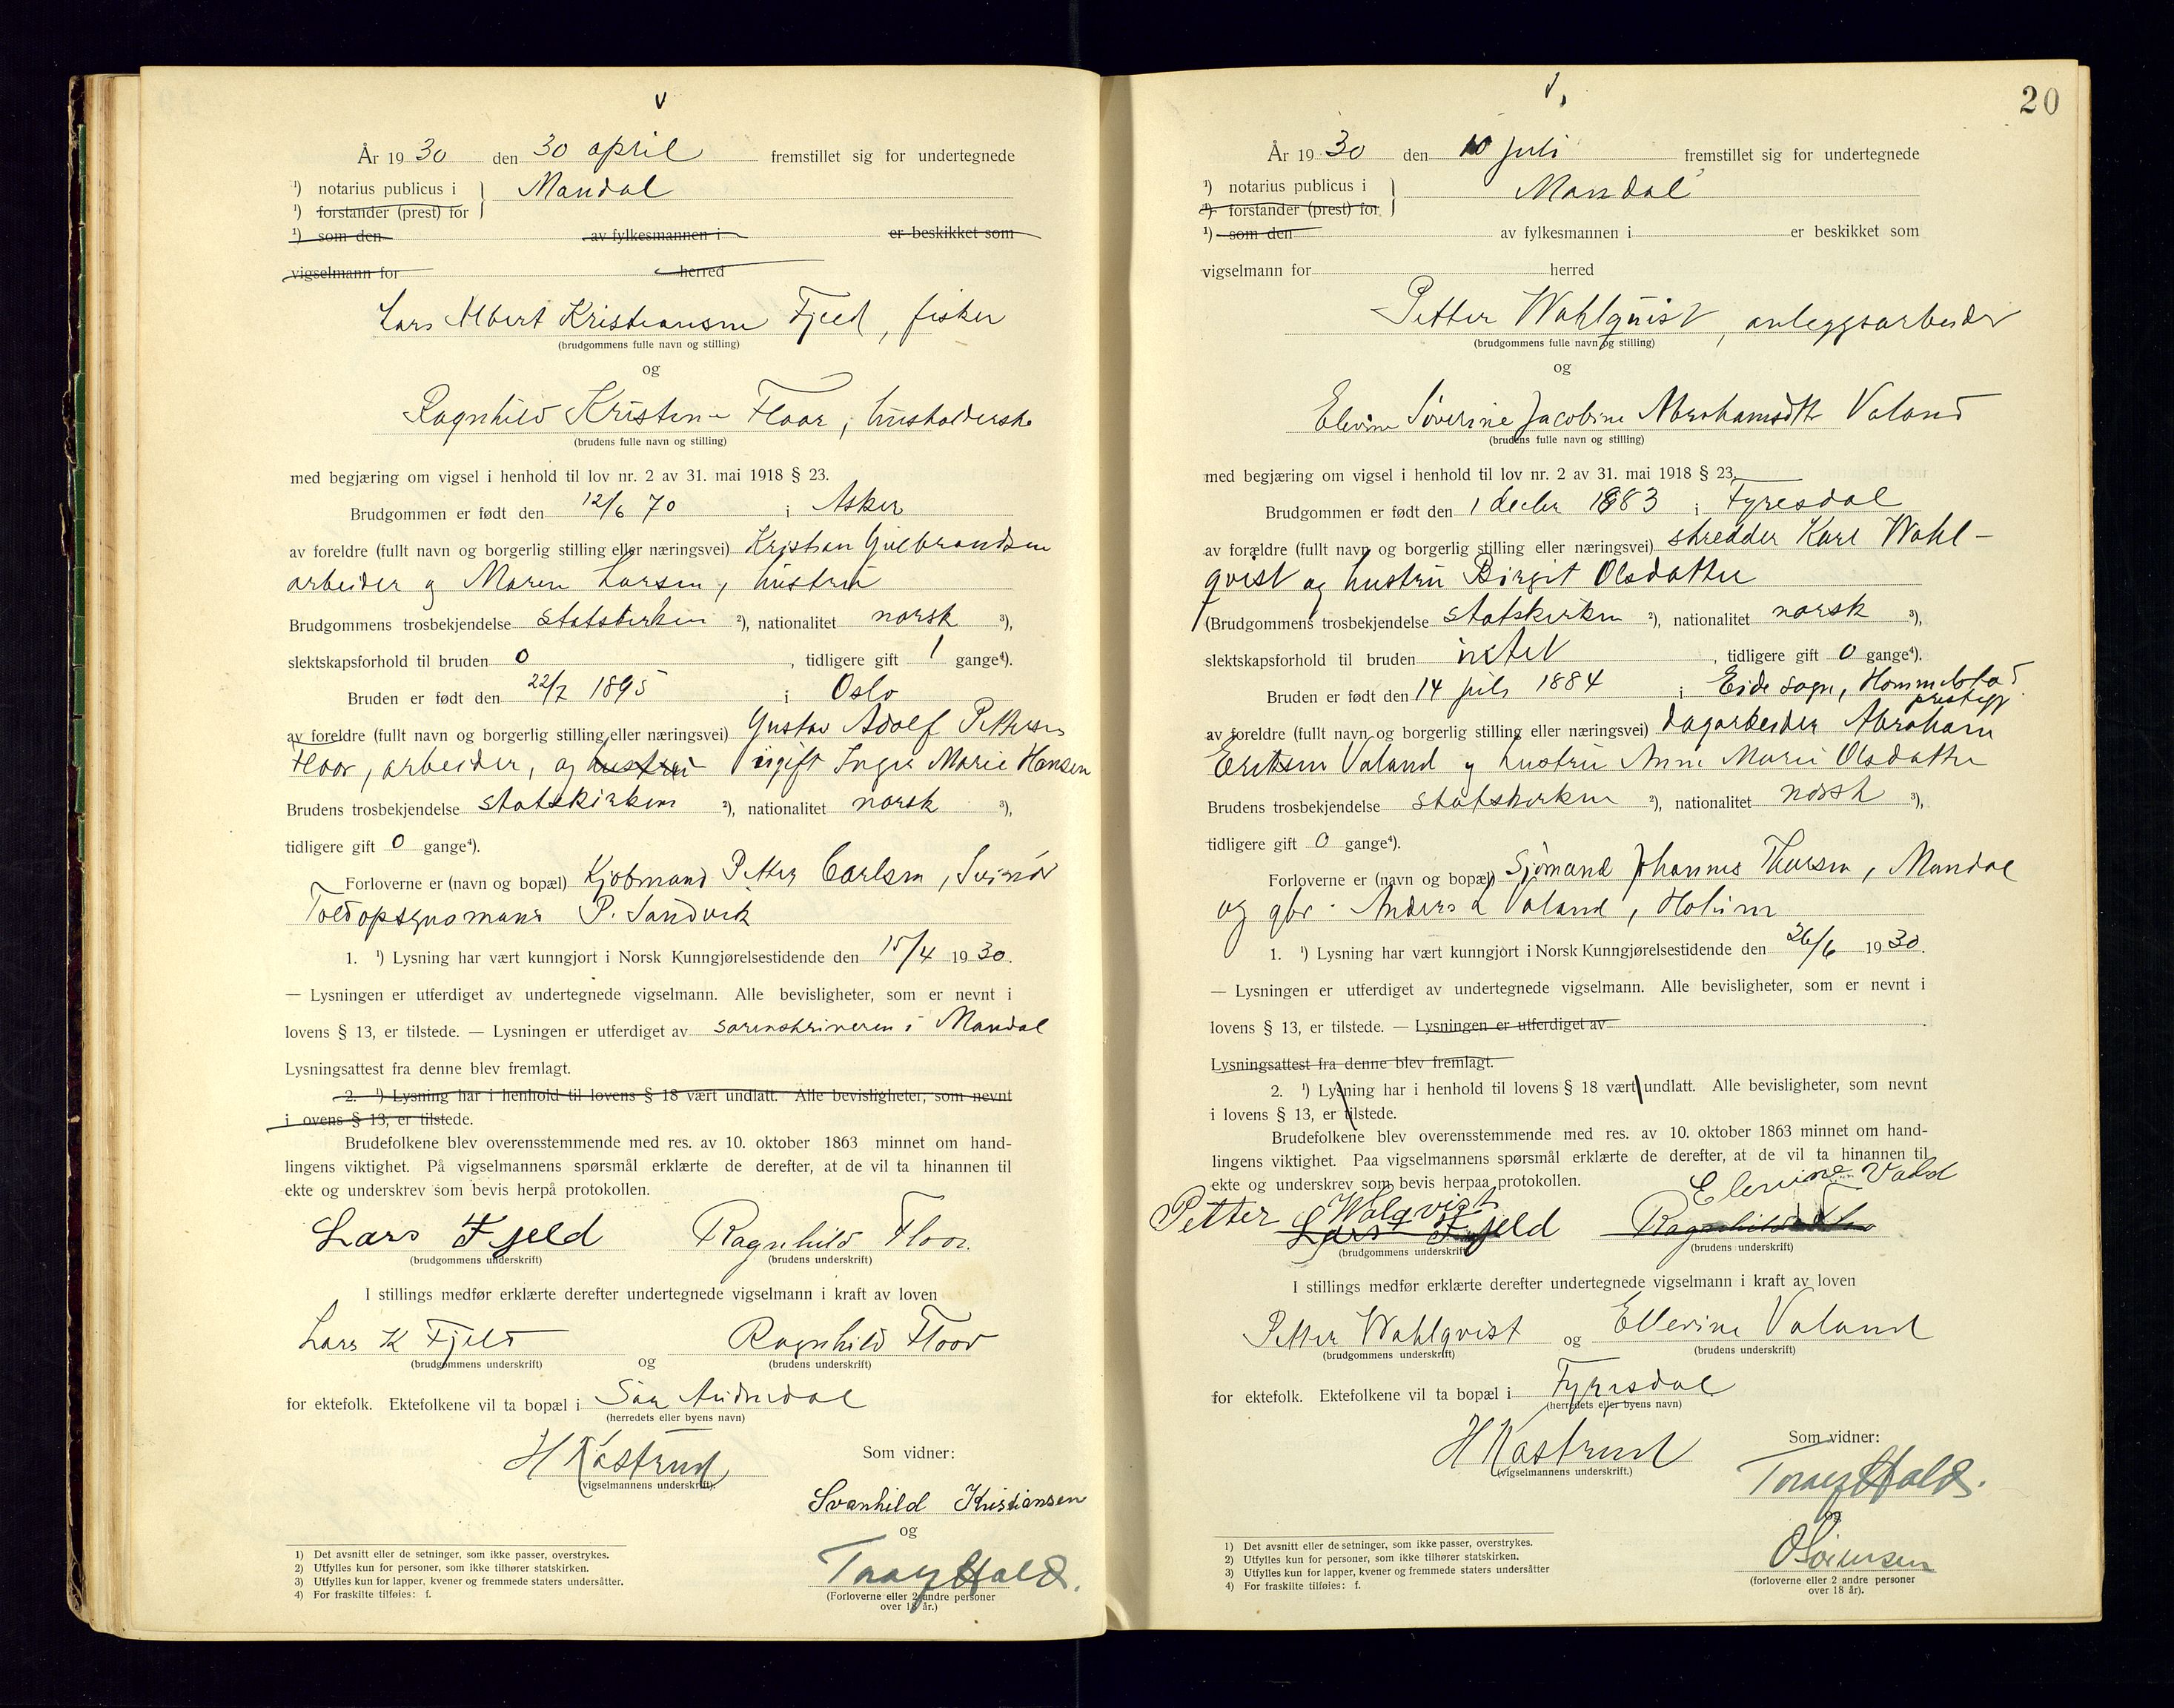 År 1930 den 30 april fremstillet sig for undertegnede
¹) notarius publicus i } Mandal
¹) forstander (prest) for
¹) som den av fylkesmannen i er beskikket som
vigselmann for herred
Lars Albert Kristiansen Fjeld, fisker
(brudgommens fulle navn og stilling)
og
Ragnhild Kristine Floor, husholderske
(brudens fulle navn og stilling)
med begjæring om vigsel i henhold til lov nr. 2 av 31. mai 1918 § 23.
Brudgommen er født den 12/6 70 i Asker
av foreldre (fullt navn og borgerlig stilling eller næringsvei) Kristian Gulbrandsen
arbeider og Maren Larsen, hustru
Brudgommens trosbekjendelse statskirken ²), nationalitet norsk ³),
slektskapsforhold til bruden 0, tidligere gift 1 gange⁴).
Bruden er født den 22/7 1895 i Oslo
av foreldre (fullt navn og borgerlig stilling eller næringsvei) Gustav Adolf Pettersen
Floor, arbeider, og hustru ugift Inger Marie Hansen
Brudens trosbekjendelse statskirken ²), nationalitet norsk ³),
tidligere gift 0 gange⁴).
Forloverne er (navn og bopæl) Kjøbmand Petter Carlsen, Svinør
Toldopsynsmann P. Sandvik
1. ¹) Lysning har vært kunngjort i Norsk Kunngjørelsestidende den 15/4 1930.
— Lysningen er utferdiget av undertegnede vigselmann. Alle bevisligheter, som er nevnt i
lovens § 13, er tilstede. — Lysningen er utferdiget av sorenskriveren i Mandal
Lysningsattest fra denne blev fremlagt.
2. ¹) Lysning har i henhold til lovens § 18 vært undlatt. Alle bevisligheter, som nevnt
i ovens § 13, er tilstede.
Brudefolkene blev overensstemmende med res. av 10. oktober 1863 minnet om hand-
lingens viktighet. På vigselmannens spørsmål erklærte de derefter, at de vil ta hinannen til
ekte og underskrev som bevis herpå protokollen.
Lars Fjeld Ragnhild Floor.
(brudgommens underskrift) (brudens underskrift)
I stillings medfør erklærte derefter undertegnede vigselmann i kraft av loven
Lars K Fjeld og Ragnhild Floor
(brudgommens underskrift) (brudens underskrift)
for ektefolk. Ektefolkene vil ta bopæl i Sør Audnedal
(herredets eller byens navn)
H Kastrud
(vigselmannens underskrift).
Som vidner:
Svanhild Kristiansen
og
Hald.
(Forloverne eller 2 andre personer
over 18 år.)
1) Det avsnitt eller de setninger, som ikke passer, overstrykes.
2) Utfylles kun for personer, som ikke tilhører statskirken.
3) Utfylles kun for lapper, kvener og fremmede staters undersåtter.
4) For fraskilte tilføies: f.
20
År 1930 den 10 juli fremstillet sig for undertegnede
¹) notarius publicus i } Mandal
¹) forstander (prest) for
¹) som den av fylkesmannen i er beskikket som
vigselmann for herred
Petter Wahlqvist, anleggsarbeider
(brudgommens fulle navn og stilling)
og
Elevine Severine Jacobine Abrahamsdtt Valand
(brudens fulle navn og stilling)
med begjæring om vigsel i henhold til lov nr. 2 av 31. mai 1918 § 23.
Brudgommen er født den 1 decbr 1883 i Fyresdal
av forældre (fullt navn og borgerlig stilling eller næringsvei) skredder Karl Wahl-
qvist og hustru Birgit Olsdatter
(Brudgommens trosbekjendelse statskirken ²), nationalitet norsk ³),
slektskapsforhold til bruden intet, tidligere gift 0 gange⁴).
Bruden er født den 14 juli 1884 i Eide sogn, Hommedal
prestegj
av foreldre (fullt navn og borgerlig stilling eller næringsvei) dagarbeider Abraham
Eriksen Valand og hustru Anne Marie Olsdatter
Brudens trosbekjendelse statskirken ²), nationalitet norsk ³),
tidligere gift 0 gange⁴).
Forloverne er (navn og bopæl) Sjømand Johannes Thorsen, Mandal
og gbr. Anders Valand, Holum
1. ¹) Lysning har vært kunngjort i Norsk Kunngjørelsestidende den 26/6 1930.
— Lysningen er utferdiget av undertegnede vigselmann. Alle bevisligheter, som er nevnt i
lovens § 13, er tilstede. — Lysningen er utferdiget av
Lysningsattest fra denne blev fremlagt.
2. ¹) Lysning har i henhold til lovens § 18 vært undlatt. Alle bevisligheter, som nevnt
i lovens § 13, er tilstede.
Brudefolkene blev overensstemmende med res. av 10. oktober 1863 minnet om hand-
lingens viktighet. Paa vigselmannens spørsmål erklærte de derefter, at de vil ta hinannen til
ekte og underskrev som bevis herpaa protokollen.
Petter Walqvist Elevine Valand
Lars Fjeld Ragnhild
(brudgommens underskrift) (brudens underskrift)
I stillings medfør erklærte derefter undertegnede vigselmann i kraft av loven
Petter Wahlqvist og Ellevine Valand
(brudgommens underskrift) (brudens underskrift)
for ektefolk. Ektefolkene vil ta bopæl i Fyresdal
(herredets eller byens navn)
H Kastrud
(vigselmannens underskrift.)
Som vidner:
Hald.
og
O Sørensen
(forloverne eller 2 andre personer
over 18 år).
1) Det avsnitt eller de setninger, som ikke passer, overstrykes.
2) Utfylles kun for personer, som ikke tilhører statskirken.
3) Utfylles kun for lapper, kvener og fremmede staters undersåtter
4) For fraskilte tilføies: f.